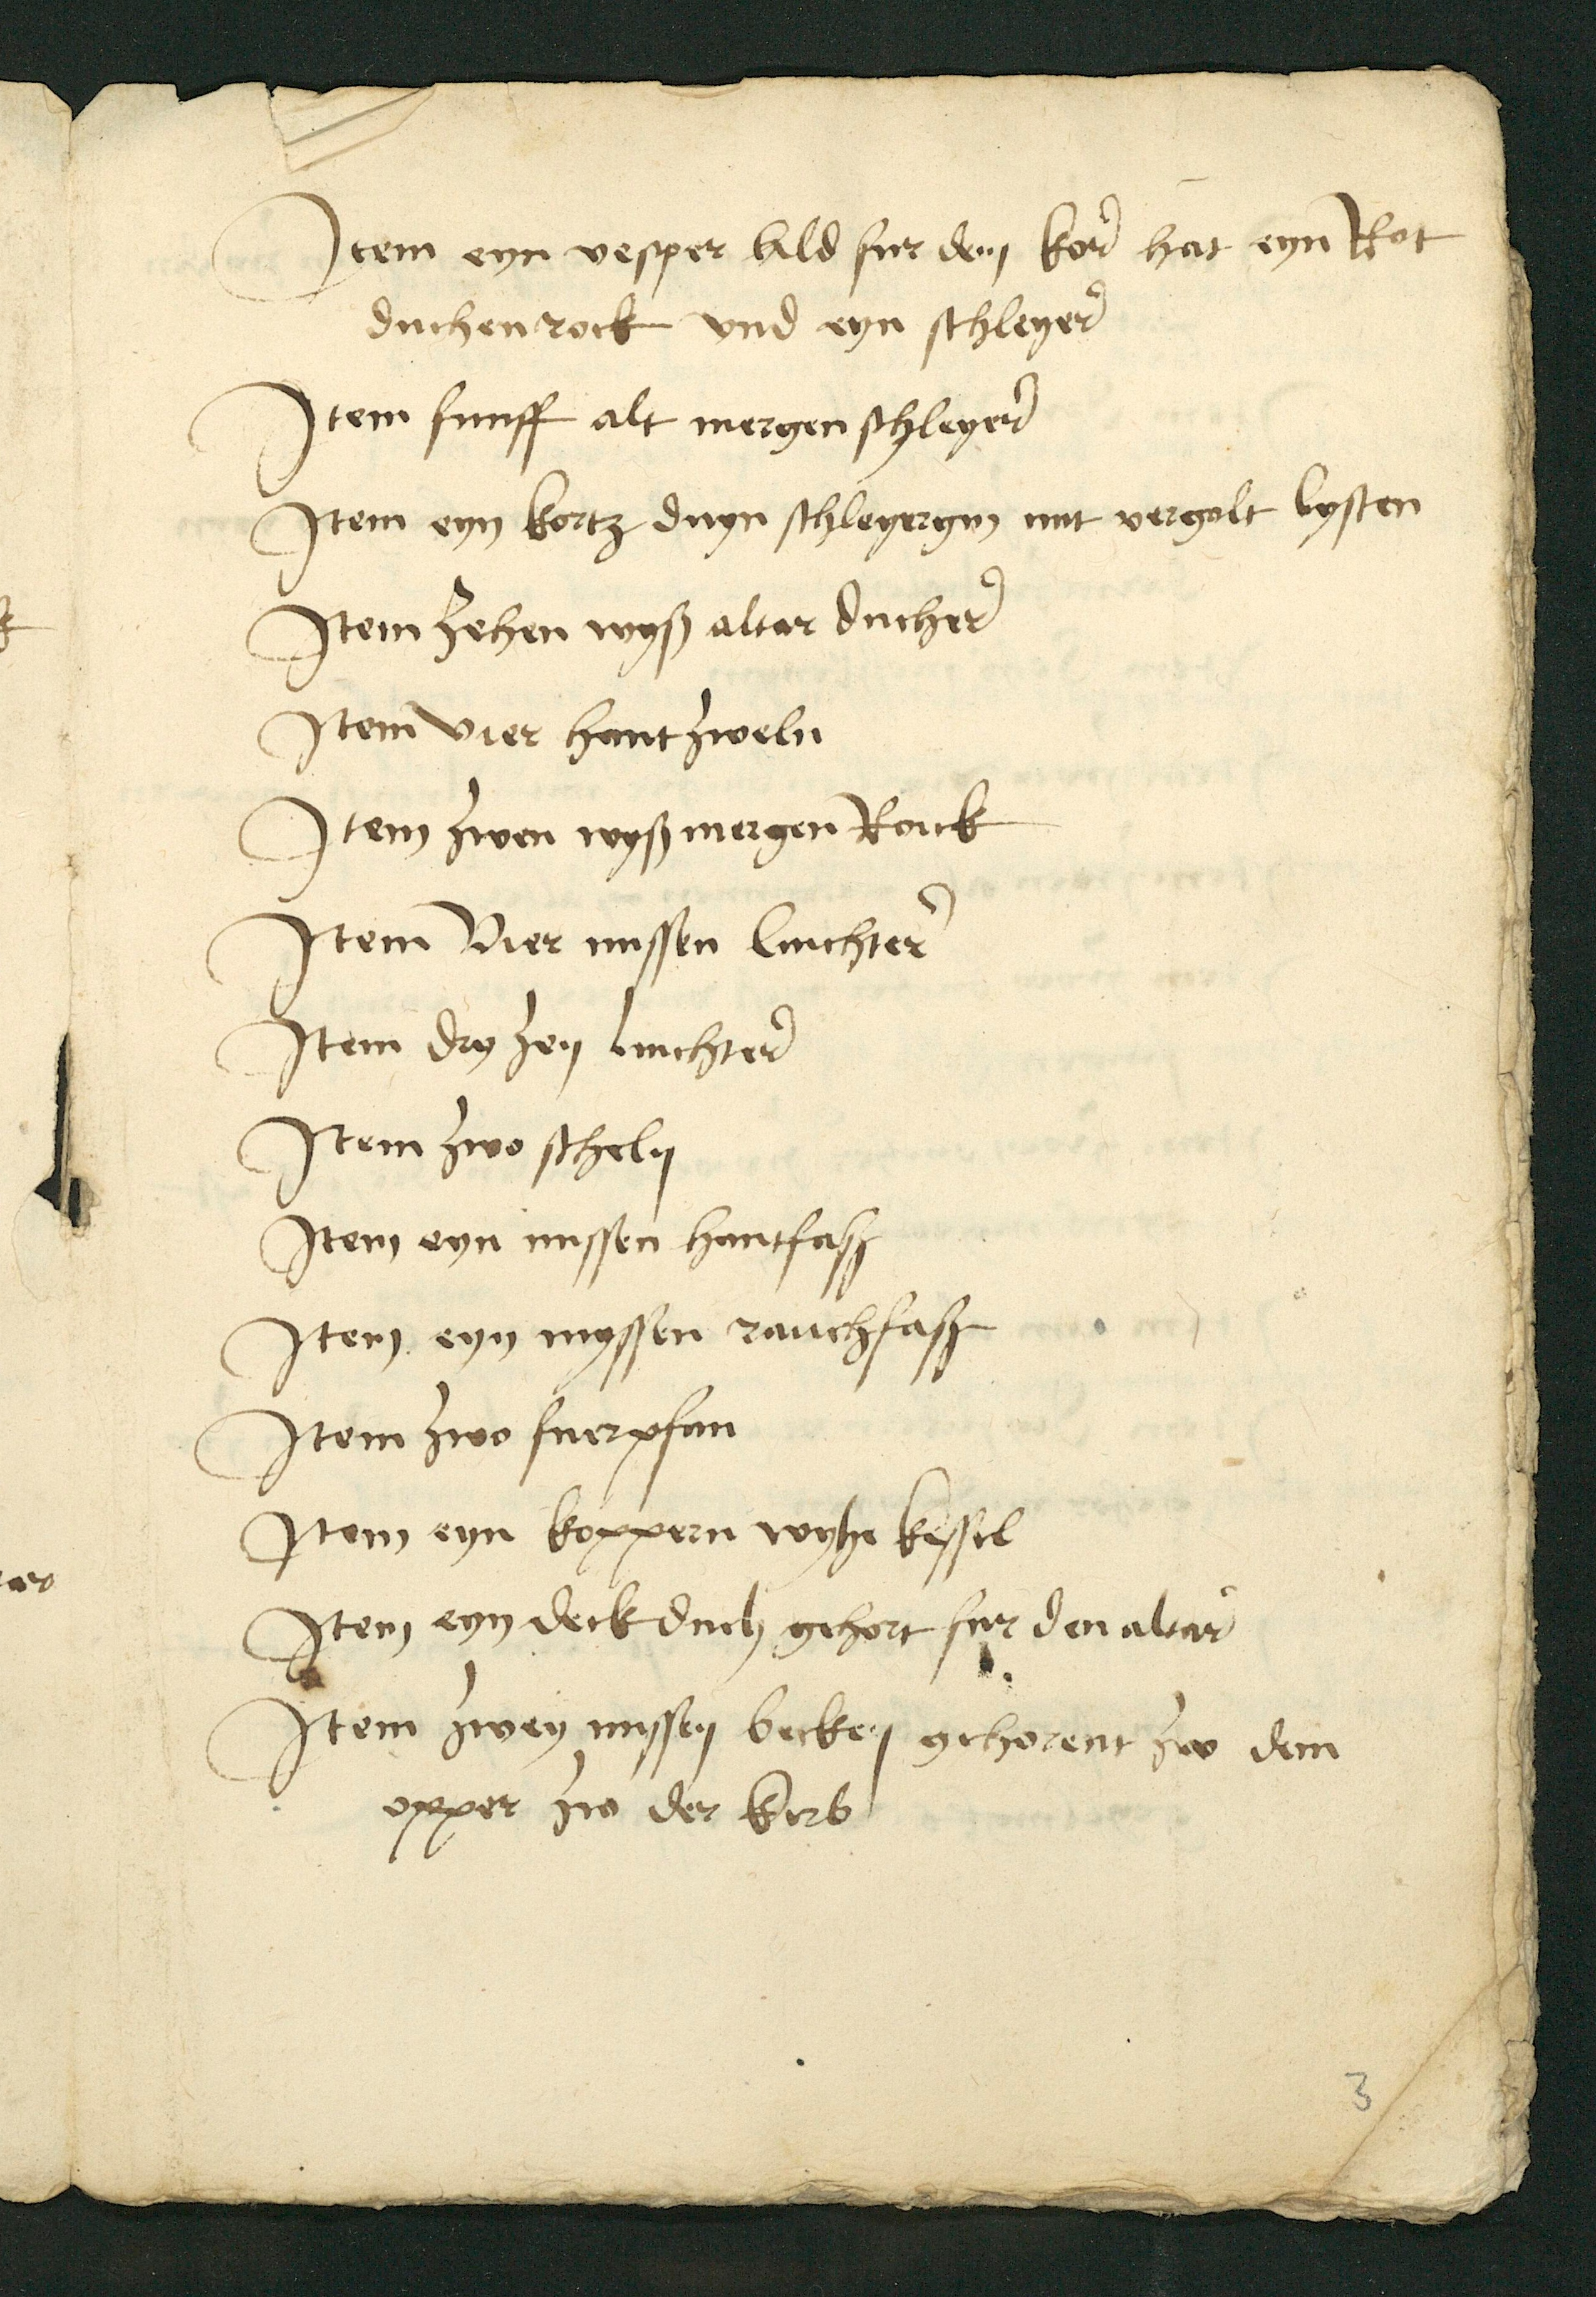 Item eyn vesper bild fur den kor hat eyn Rot
duchen rock vnd eyn schleyer
Item funff alt mergen schleyer
Item eyn kortz duyn schleyergin mit vergolt lysten
Item zehen wyß altar ducher
Item vier hantzweln
Item zwen wyß mergen Rock
Item Vier missen luchter
Item dry zen luchter
Item zwo scheln
Item eyn missen hantfaß
Item eyn myssen rauchfaß
Item zwo fuerpfan
Item eyn koppern wyhe kessel
Item eyn deck duch gehort fur den altar
Item zwey missen becken gehorent zw dem
opper zw der kirb
3